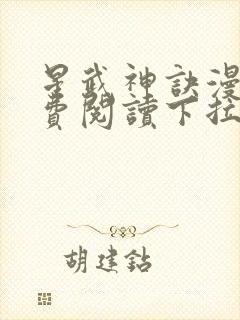 星武神訣漫
費閱讀下拉
胡建鈷